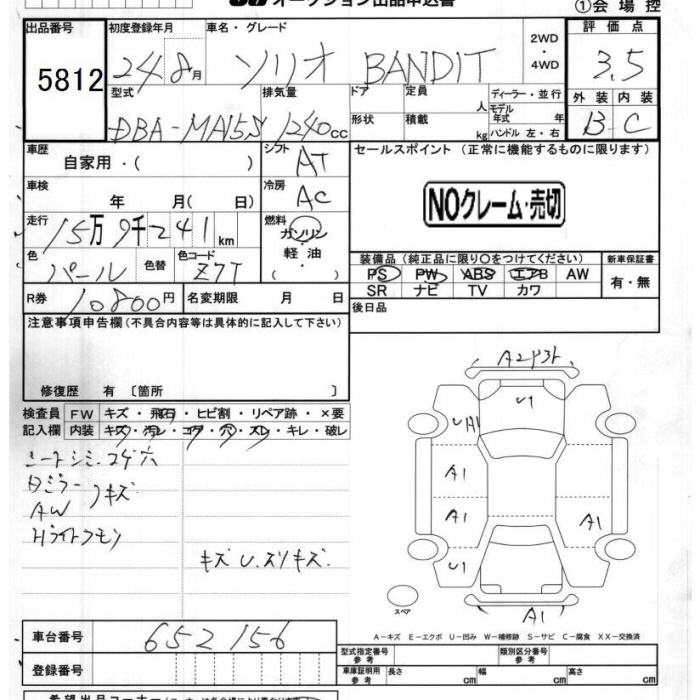 オークション出品申込書
①会場控
出品番号 初度登録年月 車名・グレード 2WD・4WD 評価点
5812 24 8月 ソリオ BANDIT 3.5
型式 排気量 ドア 定員 人 ディーラー・並行 外装 内装
DBA-MA15S 1240cc 形状 積載 kg モデル年式 年式 ハンドル 左・右 B C
車歴 自家用・( ) シフト AT セールスポイント (正常に機能するものに限ります)
車検 年 月( 日) 冷房 AC NOクレーム・売切
走行 15万9千241km 燃料 ガソリン・軽油・( )
色 パール 色替 色コード Z7T 装備品(純正品に限り○をつけてください) 新車保証書
PS PW ABS エアB AW 有・無
SR ナビ TV カワ
R券 10800円 名変期限 月 日 後日品
注意事項申告欄(不具合内容等は具体的に記入して下さい)
修復歴 有 〔箇所 〕
検査員 FW キズ・飛石・ヒビ割・リペア跡・×要
記入欄 内装 キズ・汚レ・コゲ・穴・ズレ・キレ・破レ
シートシミ.コゲ穴
Dミラー
AW キズ
Hライトクモリ
キズU.スリキズ
A2
U1
UA1
A1
A1
A1
U1
A1
スペア
A−キズ E−エクボ U−凹み W−補修跡 S−サビ C−腐食 XX−交換済
車台番号 652156
型式指定番号 参考 類別区分番号 参考
登録番号 車庫証明用 参考 長さ cm 幅 cm 高さ cm
希望出品コーナー